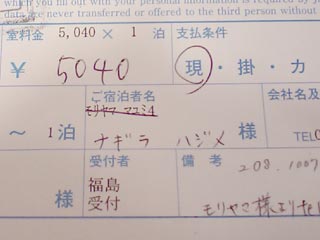 which you fill out with your personal information is required by
data are never transferred or offered to the third person without
室料金 5,040 × 1 泊 支払条件
¥ 5040 現・掛・カ
ご宿泊者名 会社名及
モリヤマ マユミ4
～ 1泊 ナギラ ハジメ 様 TEL
受付者 備考 208.1007
様 福島
受付 モリヤマ様より